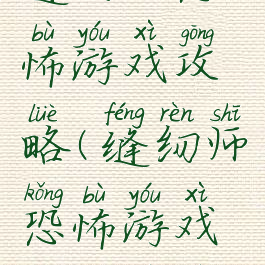 bù yóu xì gōng
怖游戏攻
lüè féng rèn shī
略(缝纫师
kǒng bù yóu xì
恐怖游戏